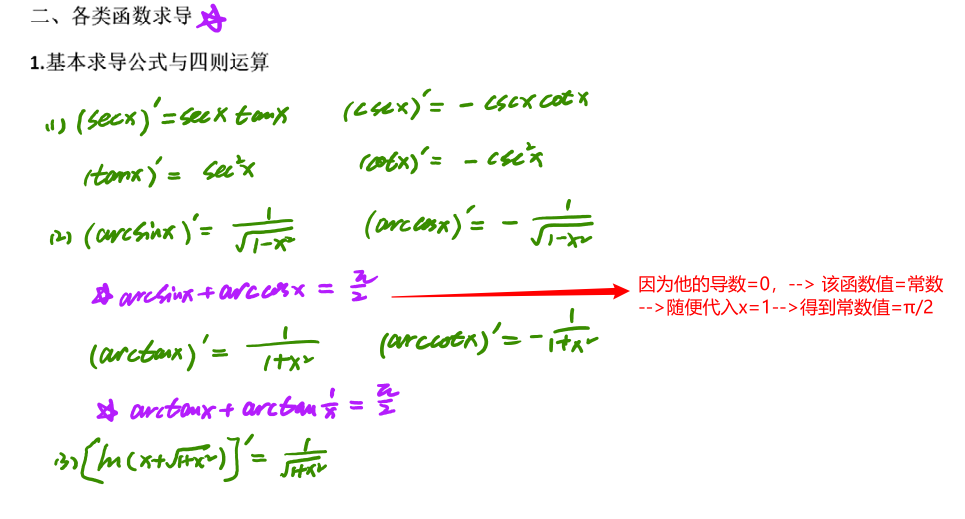 二、各类函数求导
1.基本求导公式与四则运算
(1) (secx)′=secx tanx (cscx)′= - cscx cotx
(tanx)′= sec²x (cotx)′= - csc²x
(2) (arcsinx)′= 1/√(1-x²) (arccosx)′= - 1/√(1-x²)
☆ arcsinx+arccosx = π/2
因为他的导数=0，--> 该函数值=常数
-->随便代入x=1-->得到常数值=π/2
(arctanx)′= 1/(1+x²) (arccotx)′= - 1/(1+x²)
☆ arctanx+arctan 1/x = π/2
(3) [ln(x+√(1+x²))]′= 1/√(1+x²)